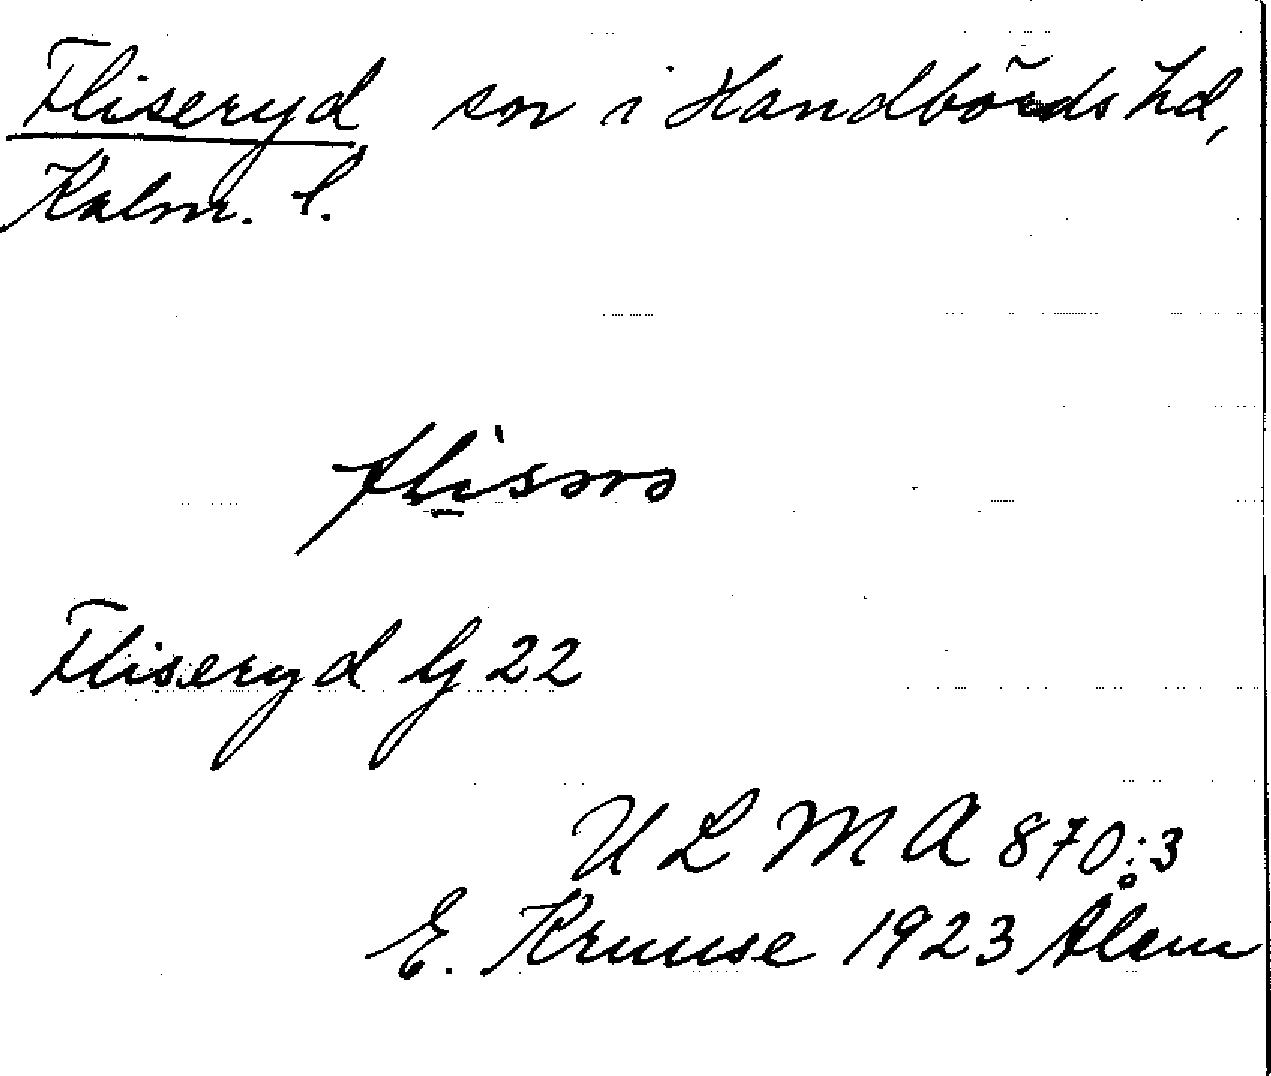 Fliseryd sn i Handbörds hd,
Kalm. l.
Fliseryd G 22
U L M A 870:3
E. Kruuse 1923 Ålem